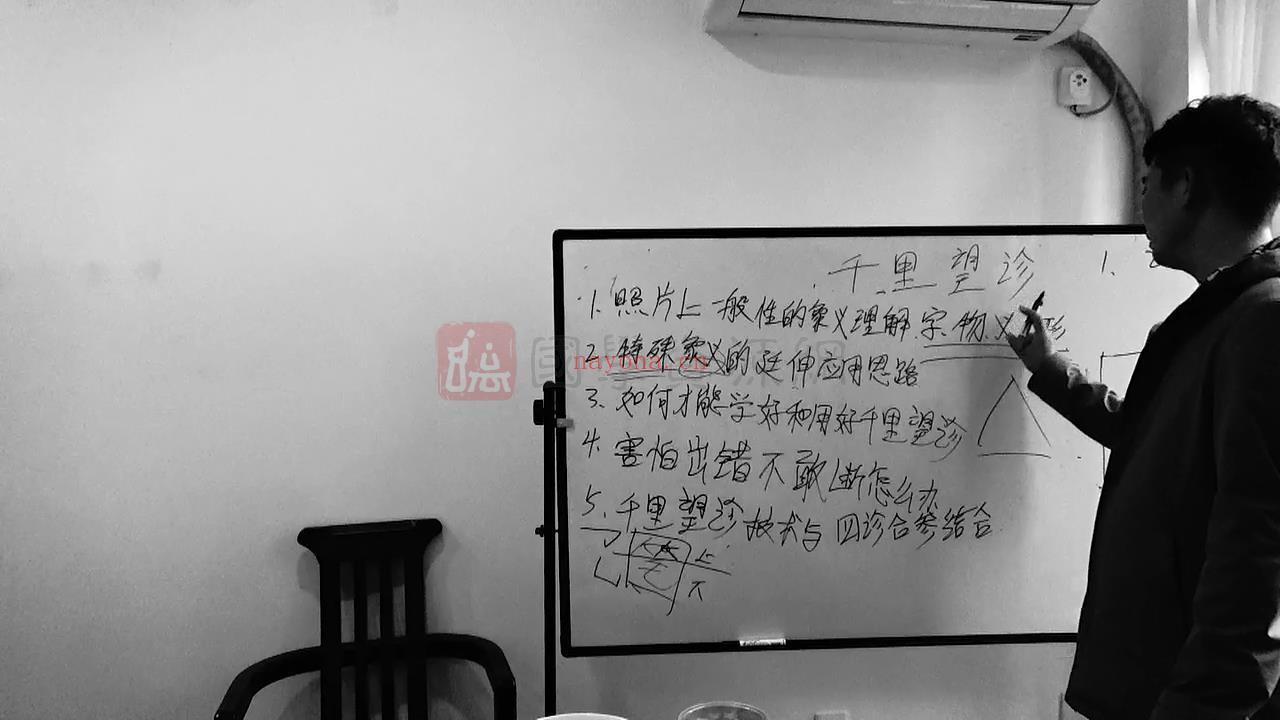 千里望诊
1.
1.照片上一般性的象义理解 字.物.义.形
2.特殊象义的延伸应用思路
3.如何才能学好和用好千里望诊
4.害怕出错不敢断怎么办
5.千里望诊技术与四诊合参结合
上
nayona.cn